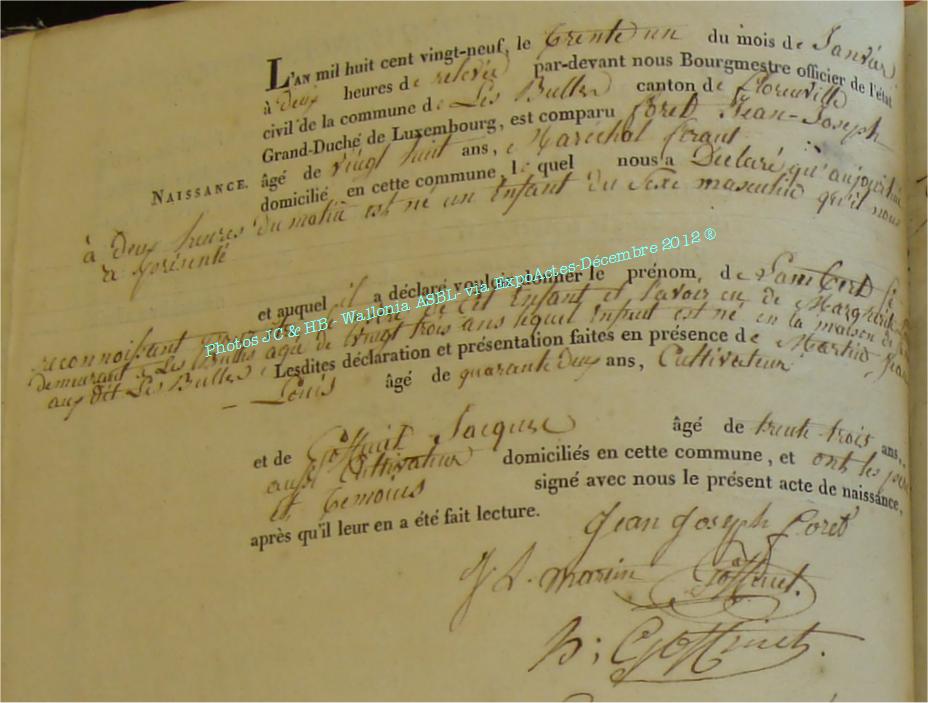 L'AN mil huit cent vingt-neuf, le trente un du mois de Janvier
à deux heures de relevée par-devant nous Bourgmestre officier de l'état
civil de la commune de Les Bulles canton de florenville
Grand-Duché de Luxembourg, est comparu foret Jean-Joseph
NAISSANCE. âgé de vingt huit ans, Marechal ferant
domicilié en cette commune, le quel nous a Déclaré qu'aujourd'hui
à deux heures du matin est né un Enfant du Sexe masculin qu'il nous
a présenté
et auquel il a déclaré vouloir donner le prénom de
reconnoissant de cet Enfant et l'avoir eu de Marguerite
demeurant à Les Bulles agée de vingt trois ans lequel Enfant est né en la maison de
aux dit Les Bulles Lesdites déclaration et présentation faites en présence de Martin, Jean
- Louis âgé de quarante deux ans, Cultivateur
et de Goffinet Jacques âgé de trente trois ans,
aussi Cultivateur domiciliés en cette commune, et ont les
et temoins signé avec nous le présent acte de naissance,
après qu'il leur en a été fait lecture.
Jean Joseph foret
J L. martin Goffinet.
B; Goffinet.
Photos JC & HB - Wallonia ASBL - via ExpoActes-Décembre 2012 ®